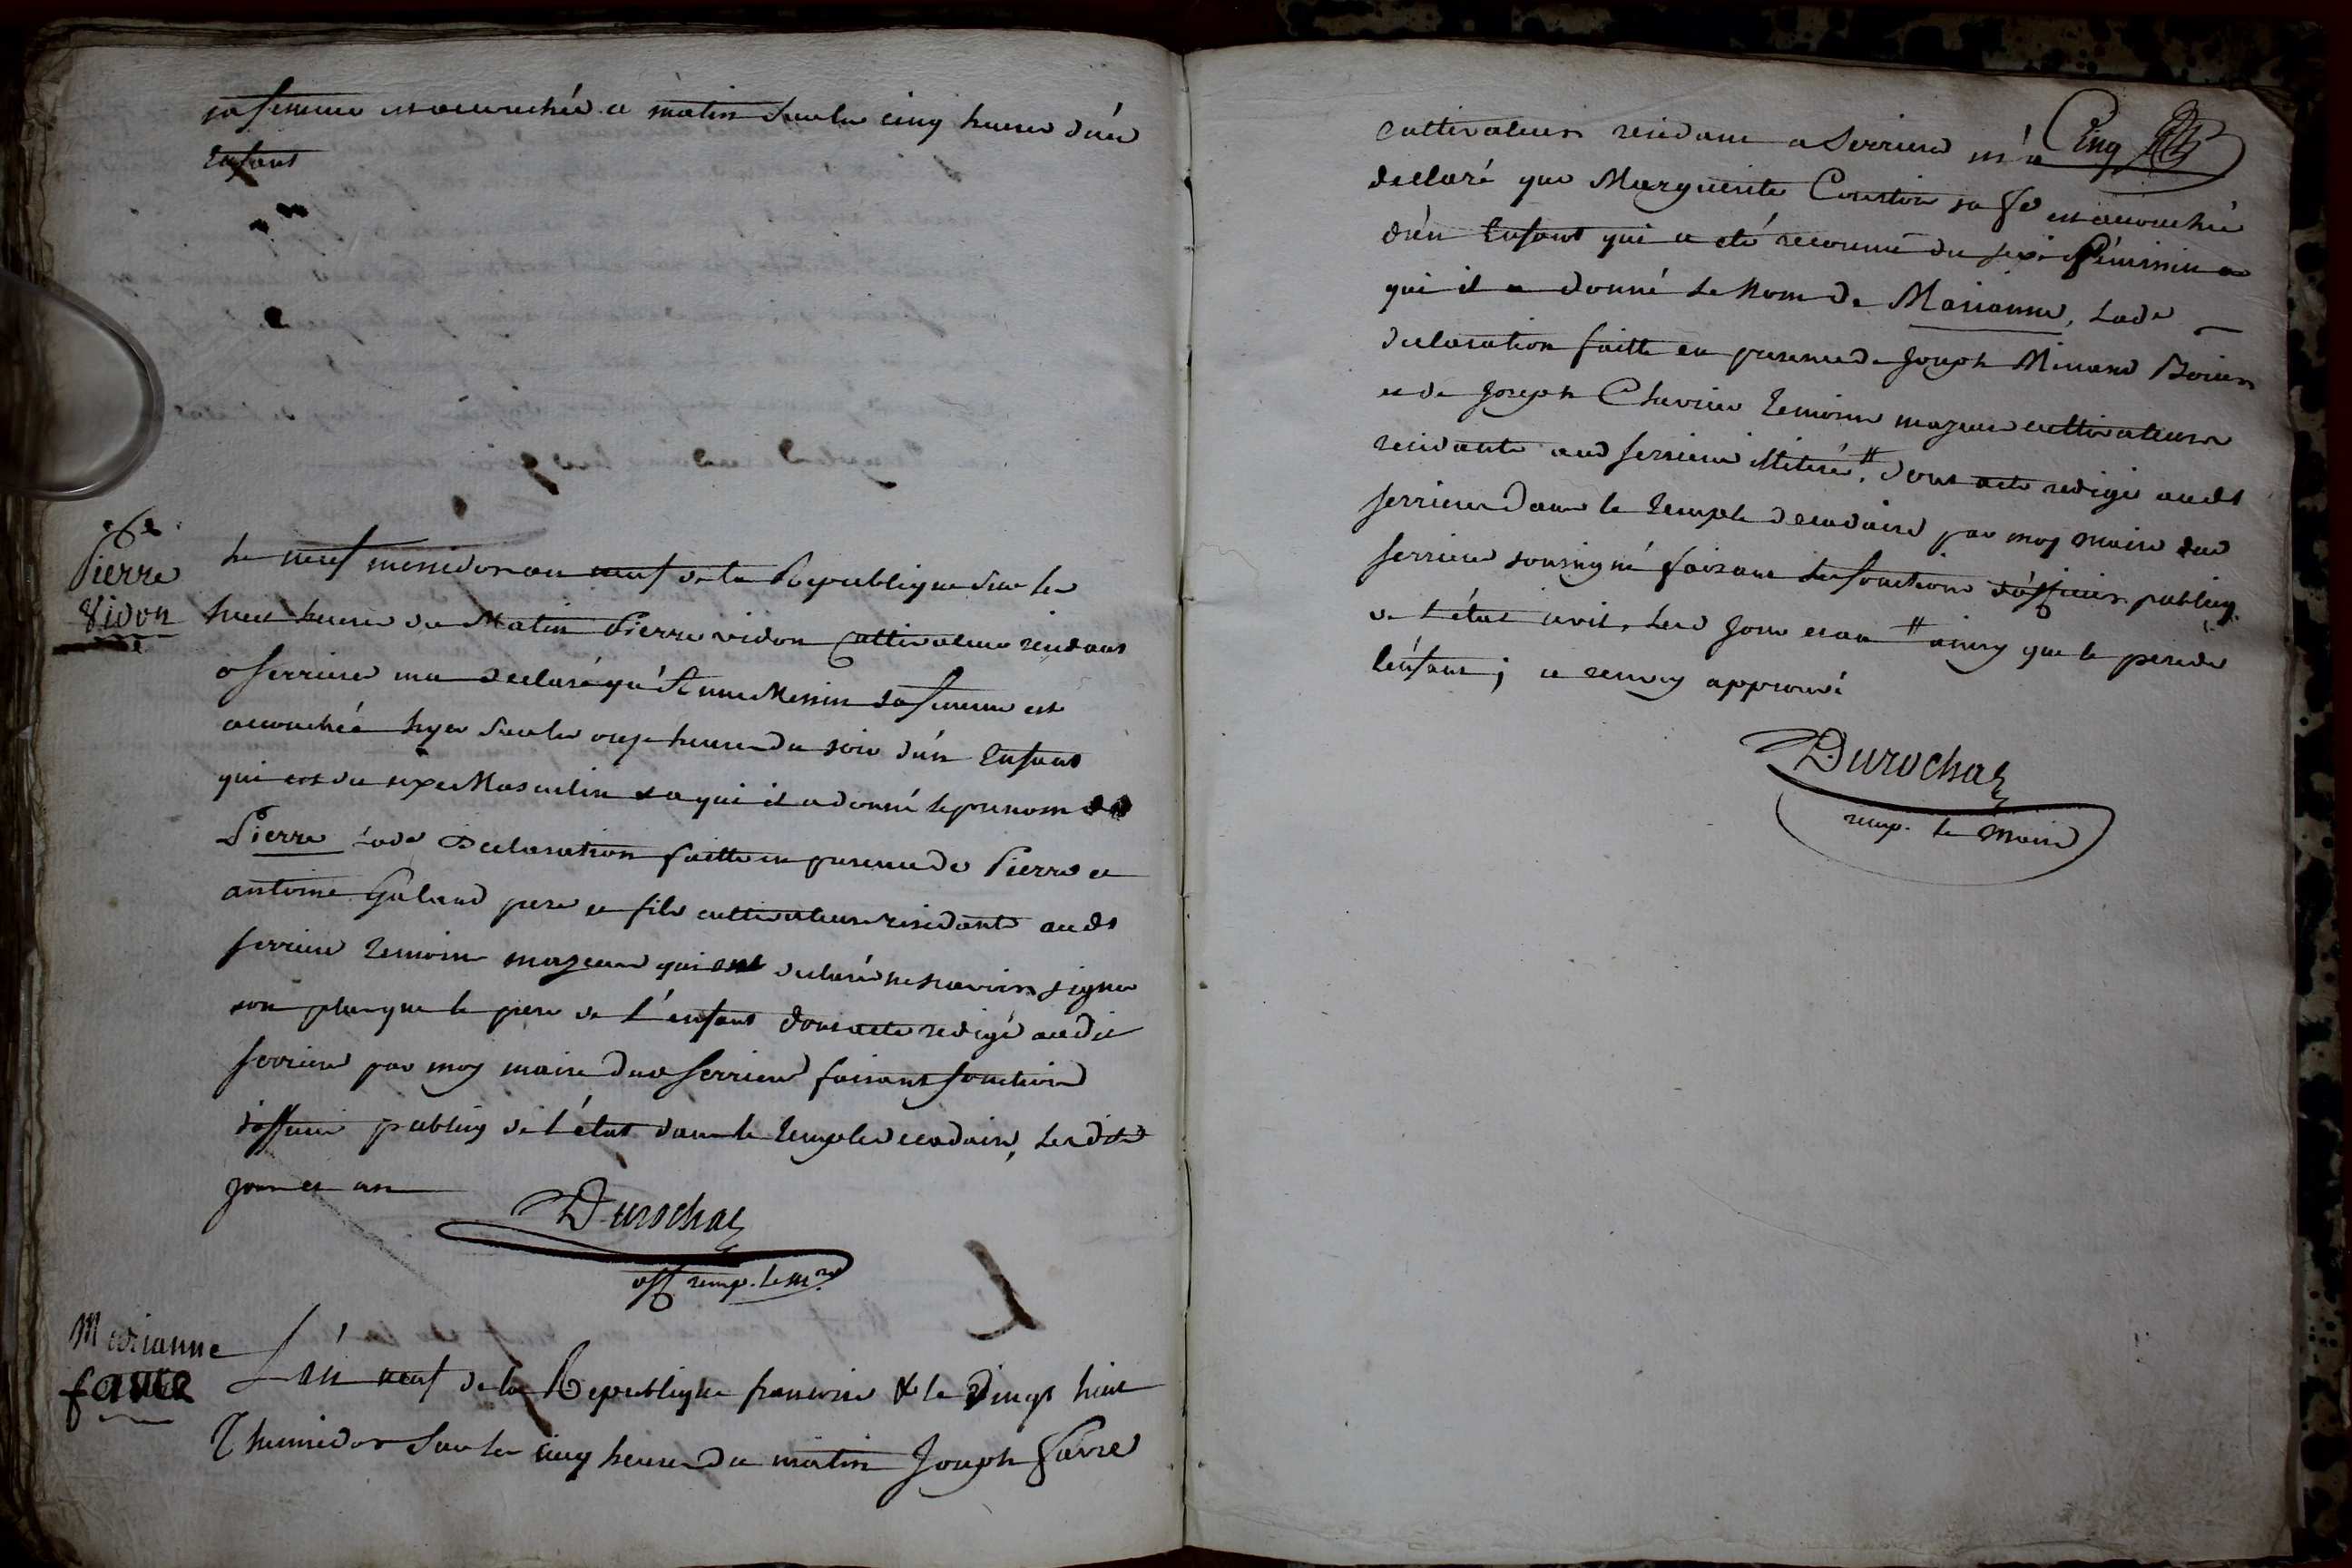 sa femme est acouchée ce matin sur les cinq heures d'un
Enfant
Pierre
Vidon
Le neuf messidor an neuf de la Republique sur les
huit heures du Matin Pierre vidon Cultivateur residant
a serriere ma declaré qu'Anne Messin sa femme est
acouchée hyer sur les onze heures du soir d'un Enfant
qui est du sexe Masculin & a qui il a donné le prenom de
Pierre lade Declaration faitte en presence de Pierre et
antoine Galand pere et fils cultivateurs residants audt
serriere temoins majeurs qui ont declaré ne scavoir signer
non plus que le pere de l'enfant dont acte redigé audit
serriere par moy maire dud serriere faisant fonction
d'officier publicq de l'état dans le temple decadaire, lesdits
jour et an
Durochat
off remp. le mre
Marianne
favre
L'an neuf de la Republique francoise & le vingt huit
Thermidor sur les cinq heures du matin Joseph favre
Cinq
cultivateur residant a Serriere m'a
declaré que Marguerite Courtois sa fe est acouchée
d'un Enfant qui a été reconnu du sexe féminin a
qui il a donné le nom de Marianne, lade
declaration faitte en presence de Joseph Minand
et de Joseph Chevrier temoins majeurs cultivateurs
residants aud serriere illiterés # dont acte redigé audt
serriere dans le temple decadaire par moy maire dud
serriere soussigné faisant les fonctions d'officier publicq
de l'état civil, lesd jour et an # ainsy que le pere de
l'enfant; ce renvoy approuvé
Durochat
remp. le Maire